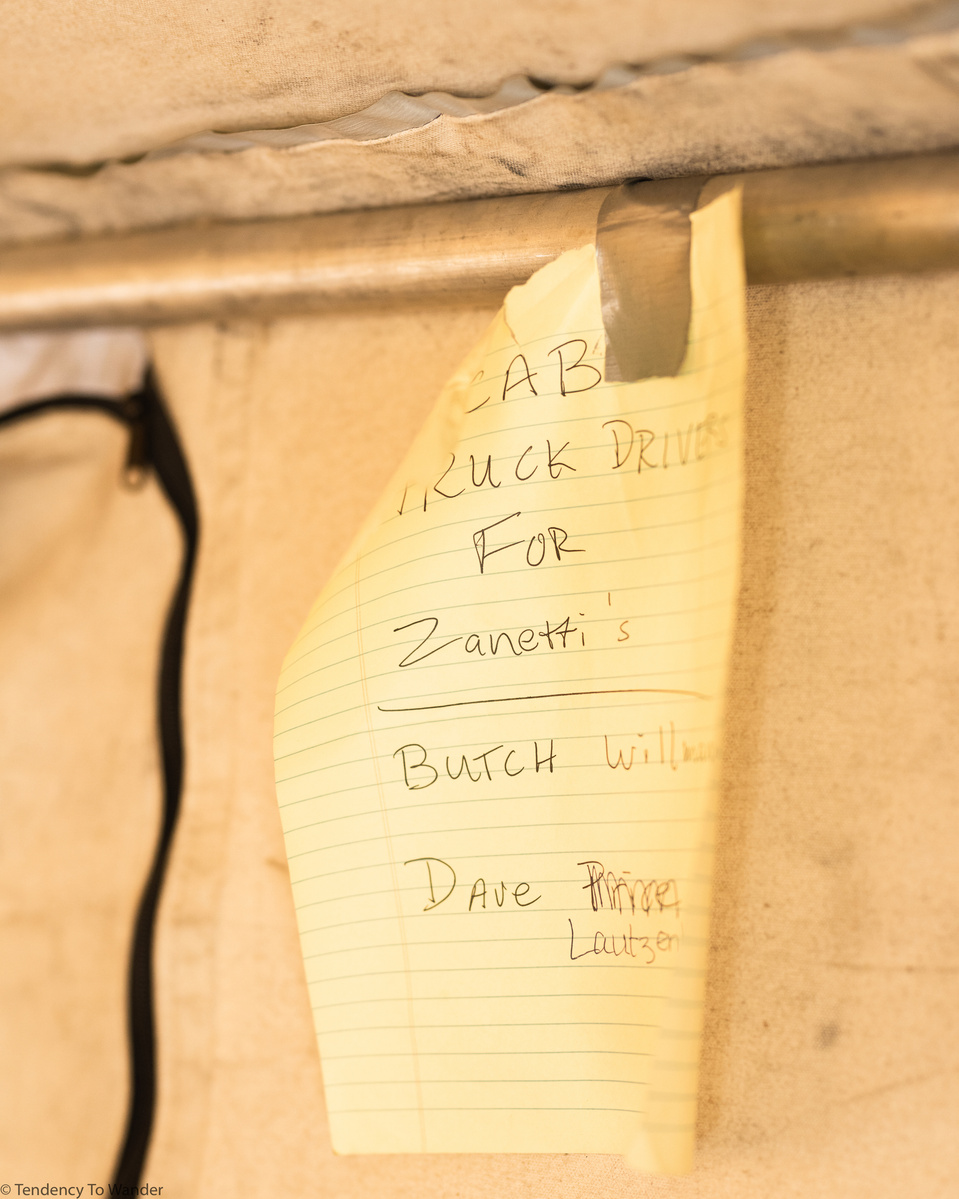 CAB
TRUCK DRIVERS
FOR
Zanetti's
BUTCH
Dave
Lautzen
© Tendency To Wander